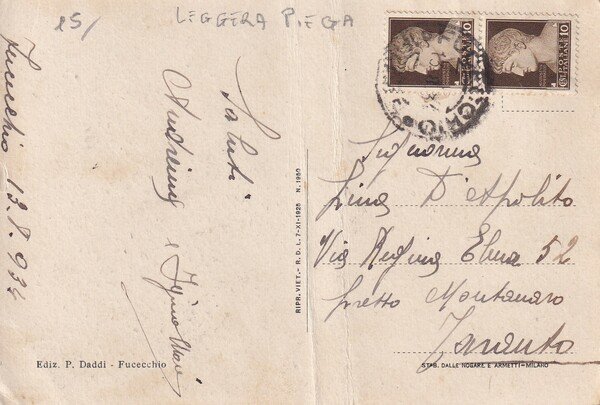 25/
LEGGERA PIEGA
Fucecchio 13.8.934
Saluti
e
Ediz. P. Daddi - Fucecchio
RIPR. VIET. - R. D. L. 7-XI-1925 N. 1950
POSTE ITALIANE 10
POSTE ITALIANE 10
Signorina
Lina D'Apolito
Via Regina Elena 52
presso Montanaro
Taranto
STAB. DALLE NOGARE E ARMETTI-MILANO